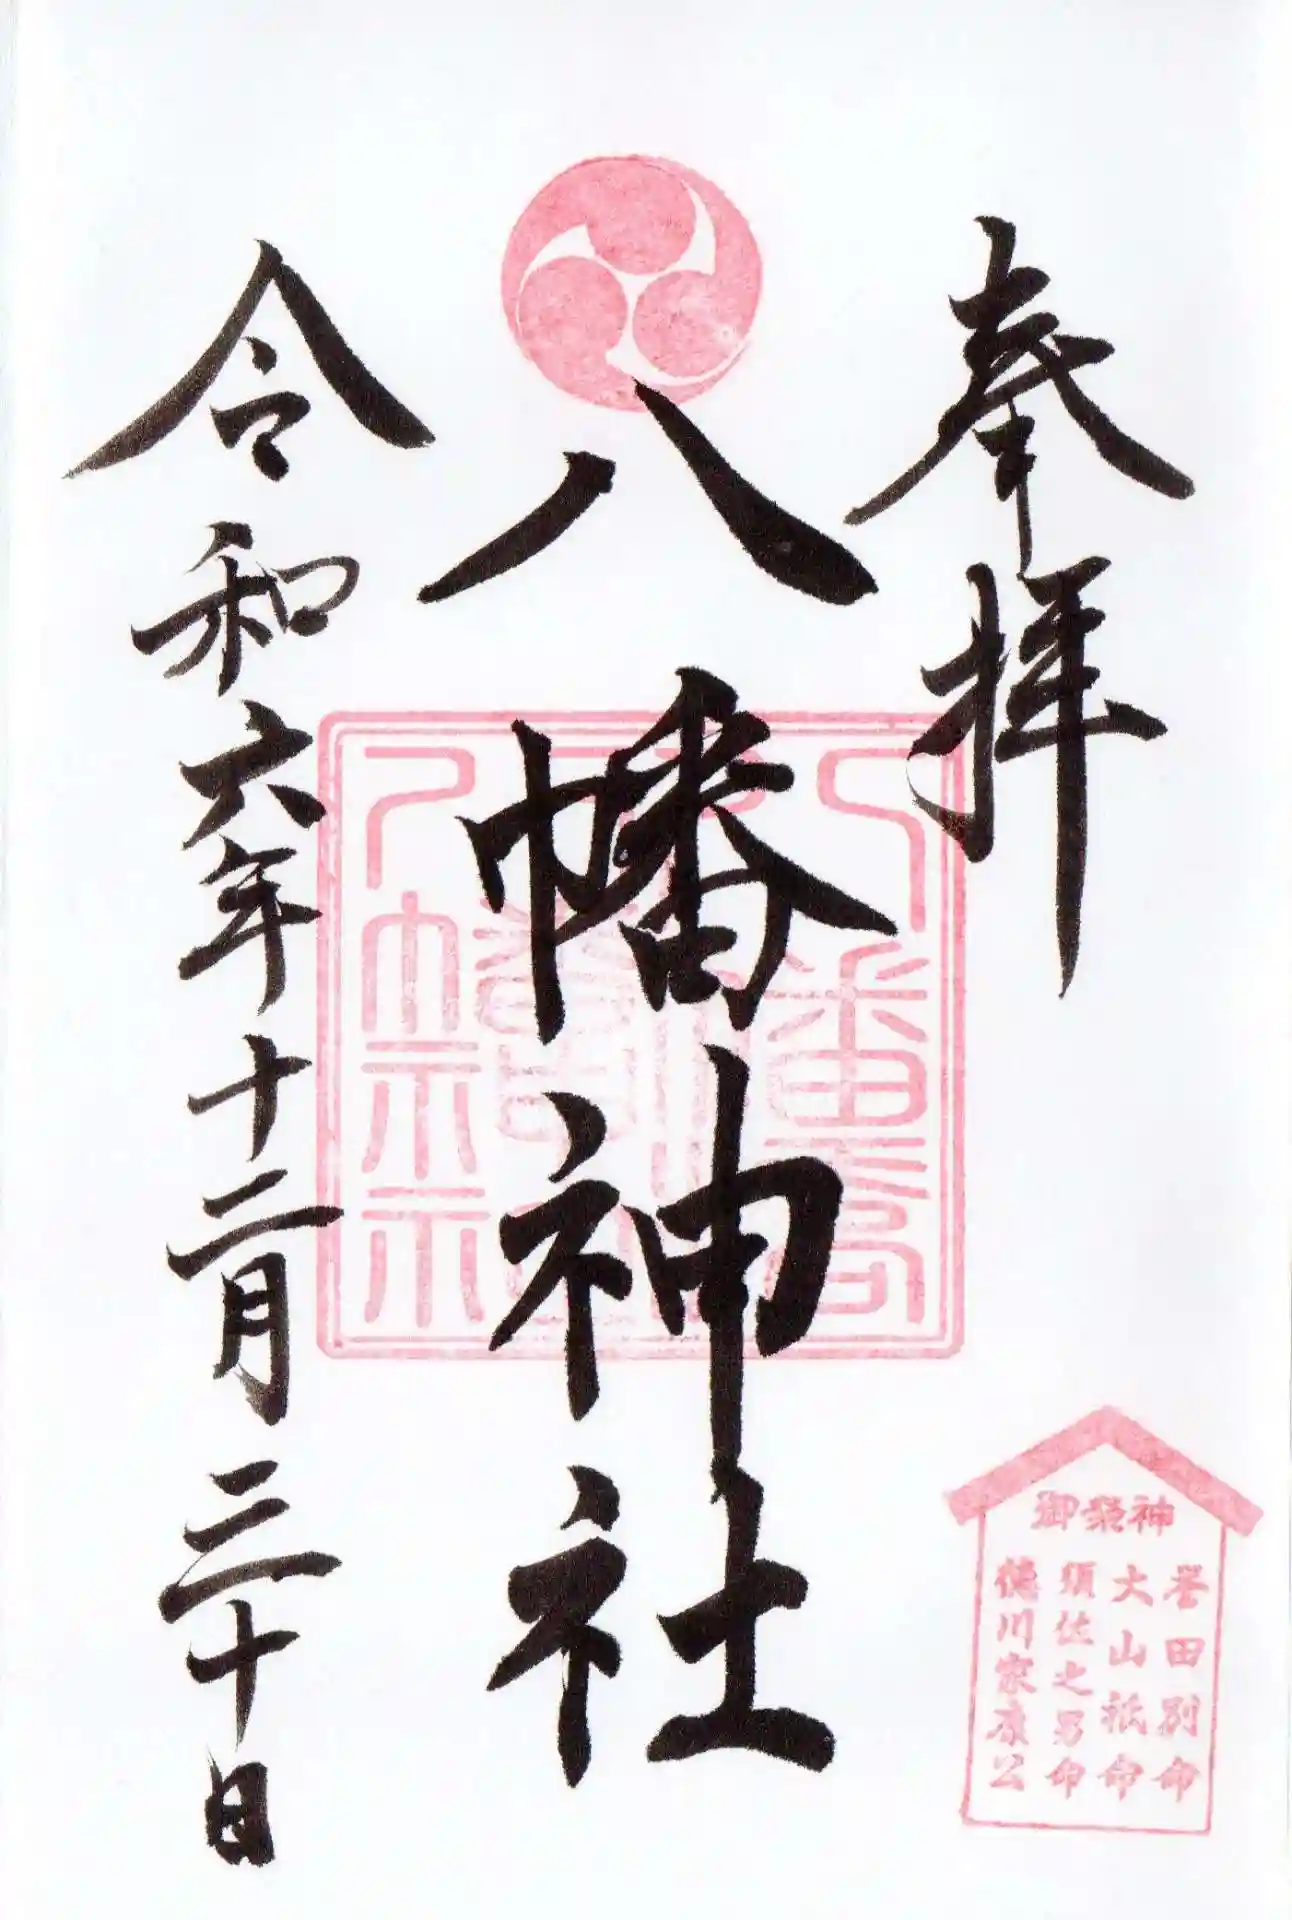 奉拝
八幡神社
令和六年十二月三十日
御祭神
誉田別命
大山祇命
須佐之男命
徳川家康公